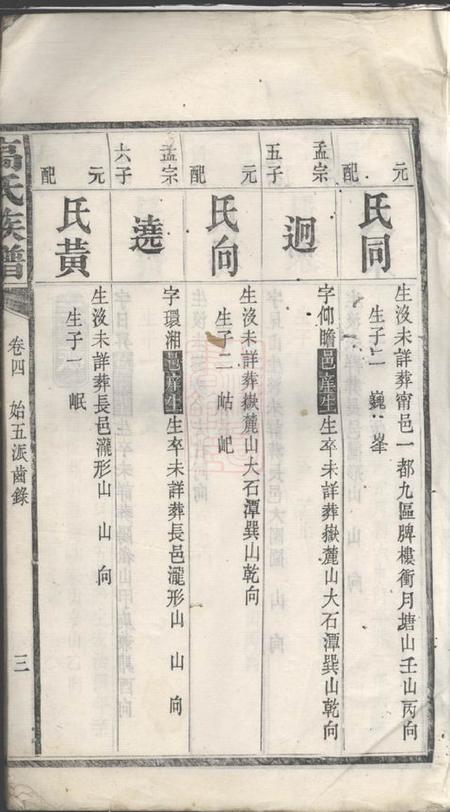 元配
氏同
生沒未詳葬甯邑一都九區牌樓衝月塘山壬山丙向
生子二　巍　峯
孟宗五子
迥
字仰瞻邑庠生生卒未詳葬嶽麓山大石潭巽山乾向
元配
氏向
生沒未詳葬嶽麓山大石潭巽山乾向
生子二　岵　岯
孟宗六子
澆
字環湘邑庠生生卒未詳葬長邑瀧形山　山　向
元配
氏黃
生沒未詳葬長邑瀧形山　山　向
生子一　岷
高氏族譜
卷四　始五派齒錄
三